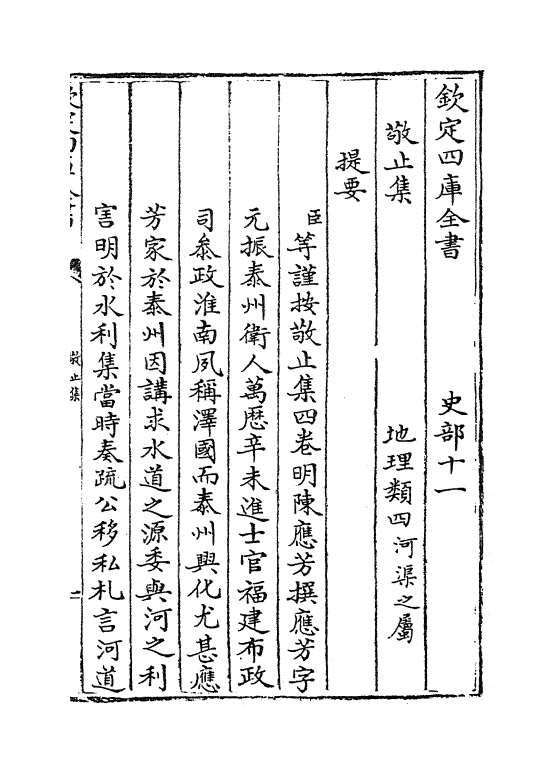 欽定四庫全書　史部十一
敬止集　地理類四河渠之屬
提要
臣等謹按敬止集四卷明陳應芳撰應芳字
元振泰州衛人萬厯辛未進士官福建布政
司叅政淮南夙稱澤國而泰州興化尤甚應
芳家於泰州因講求水道之源委與河之利
害明於水利集當時奏疏公移私札言河道
敬止集